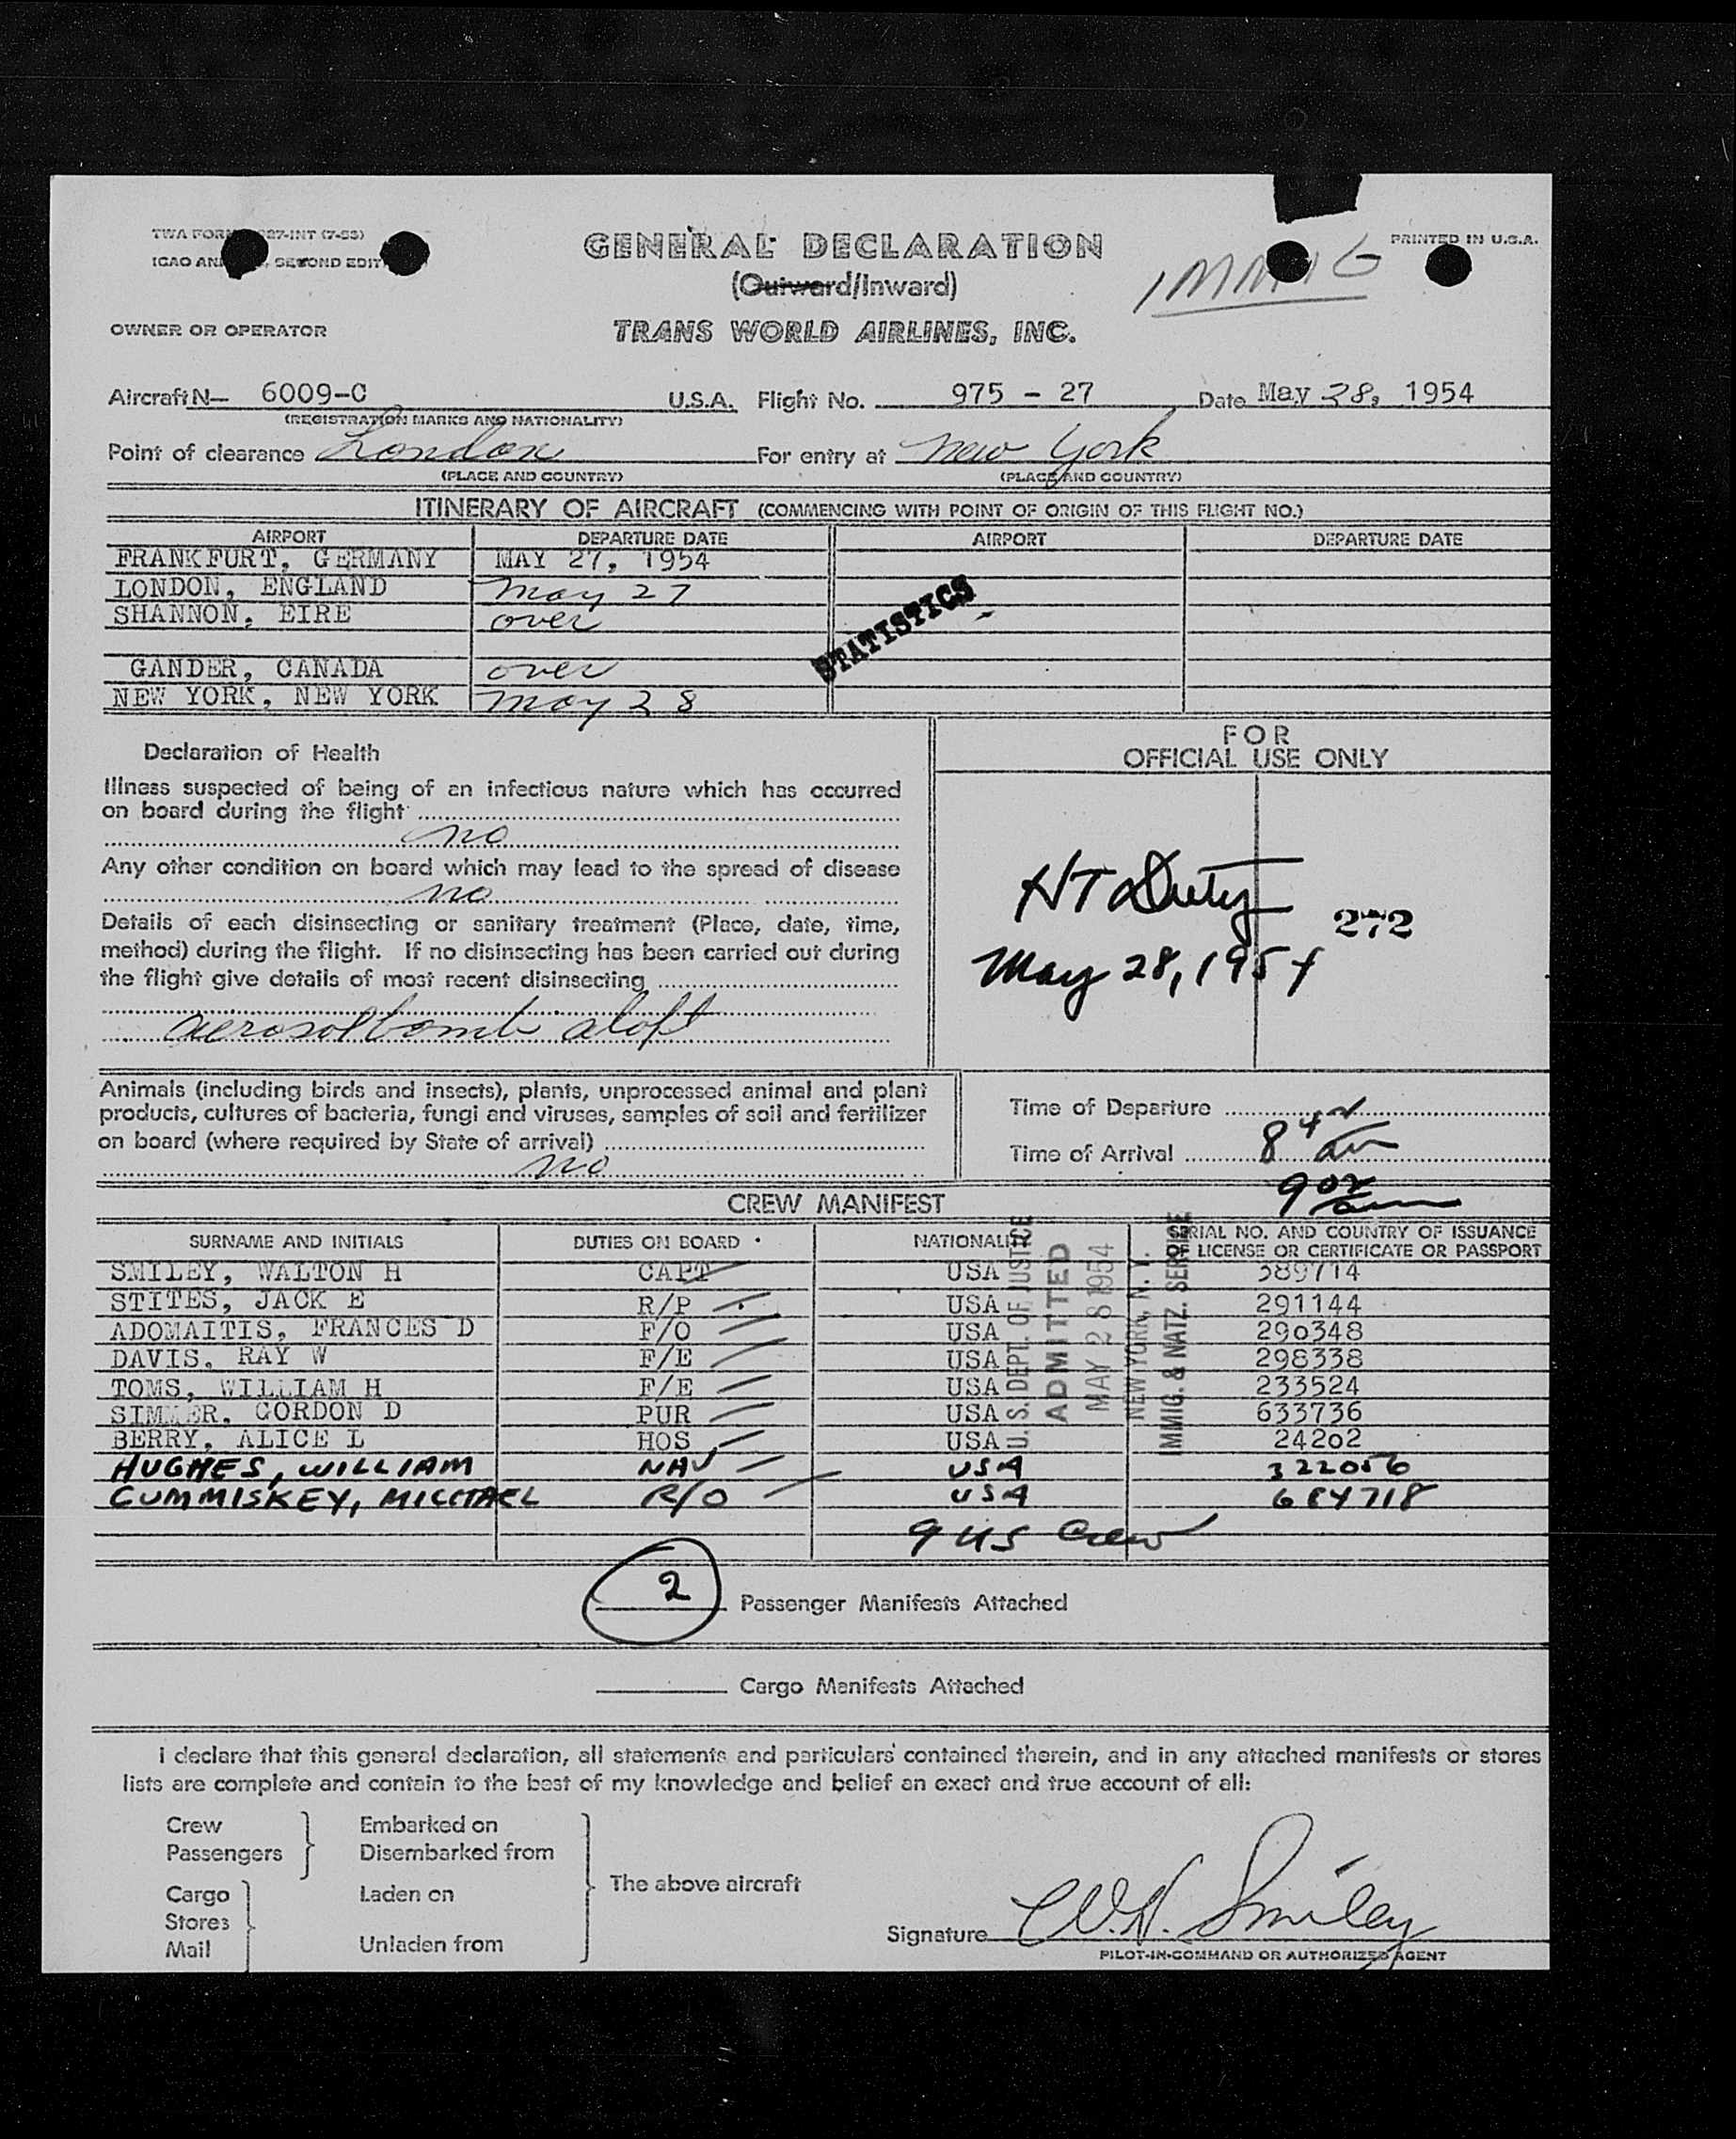 GENERAL DECLARATION
(Outward/Inward)
IMMIG
PRINTED IN U.S.A.
OWNER OR OPERATOR
TRANS WORLD AIRLINES, INC.
Aircraft N— 6009-C U.S.A. Flight No. 975 - 27 Date May 28, 1954
(REGISTRATION MARKS AND NATIONALITY)
Point of clearance London For entry at New York
(PLACE AND COUNTRY) (PLACE AND COUNTRY)
ITINERARY OF AIRCRAFT (COMMENCING WITH POINT OF ORIGIN OF THIS FLIGHT NO.)
AIRPORT DEPARTURE DATE AIRPORT DEPARTURE DATE
FRANKFURT, GERMANY MAY 27, 1954
LONDON, ENGLAND May 27
SHANNON, EIRE over
GANDER, CANADA over
NEW YORK, NEW YORK May 28
STATISTICS
Declaration of Health
Illness suspected of being of an infectious nature which has occurred
on board during the flight
no
Any other condition on board which may lead to the spread of disease
no
Details of each disinsecting or sanitary treatment (Place, date, time,
method) during the flight. If no disinsecting has been carried out during
the flight give details of most recent disinsecting
aerosol bomb aloft
FOR
OFFICIAL USE ONLY
272
May 28, 1954
Animals (including birds and insects), plants, unprocessed animal and plant
products, cultures of bacteria, fungi and viruses, samples of soil and fertilizer
on board (where required by State of arrival)
no
Time of Departure
Time of Arrival
CREW MANIFEST
SURNAME AND INITIALS DUTIES ON BOARD NATIONALITY SERIAL NO. AND COUNTRY OF ISSUANCE
OF LICENSE OR CERTIFICATE OR PASSPORT
SMILEY, WALTON H CAPT USA 389714
STITES, JACK E R/P USA 291144
ADOMAITIS, FRANCES D F/O USA 290348
DAVIS, RAY W F/E USA 298338
TOMS, WILLIAM H F/E USA 233524
SIMMER, GORDON D PUR USA 633736
BERRY, ALICE L HOS USA 24202
HUGHES, WILLIAM NAV USA 322056
CUMMISKEY, MICHAEL R/O USA 684718
9 US Crew
U.S. DEPT. OF JUSTICE
ADMITTED
MAY 28 1954
NEW YORK, N. Y.
IMMIG. & NATZ. SERVICE
2 Passenger Manifests Attached
Cargo Manifests Attached
I declare that this general declaration, all statements and particulars contained therein, and in any attached manifests or stores
lists are complete and contain to the best of my knowledge and belief an exact and true account of all:
Crew
Passengers
Embarked on
Disembarked from
Cargo
Stores
Mail
Laden on
Unladen from
The above aircraft
Signature W.H. Smiley
PILOT-IN-COMMAND OR AUTHORIZED AGENT